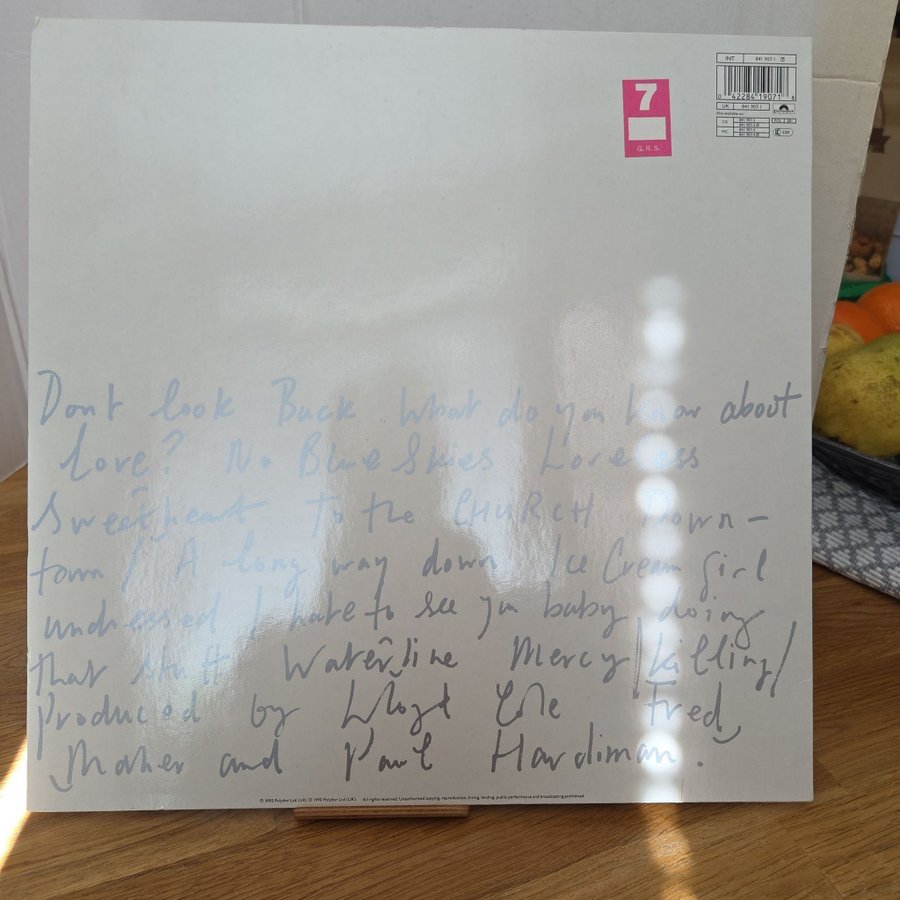 7
G.R.S.
INT 841 907-1
0 42284 19071 8
UK 841 907-1
Also available on:
CD
MC
Dont look Back What do you know about
love? No Blue Skies Loveless
Sweetheart To the CHURCH Down-
town / A long way down Ice Cream Girl
undressed I hate to see you baby doing
that stuff Waterline Mercy/killing/
produced by Lloyd Cole Fred
Maher and Paul Hardiman.
℗ 1990 Polydor Ltd (UK) © 1990 Polydor Ltd (UK). All rights reserved. Unauthorised copying, reproduction, hiring, lending, public performance and broadcasting prohibited.